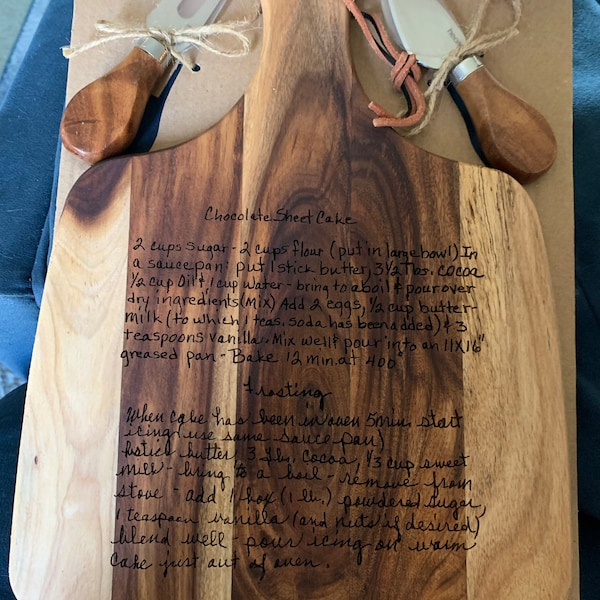 Chocolate Sheet Cake
2 cups sugar - 2 cups flour (put in large bowl) In
a sauce pan: put 1 stick butter, 3 1/2 Tbs. cocoa
1/2 cup Oil & 1 cup water - bring to a boil & pour over
dry ingredients (Mix) Add 2 eggs, 1/2 cup butter-
milk (to which 1 teas. soda has been added) & 3
teaspoons vanilla. Mix well & pour into an 11X16"
greased pan - Bake 12 min. at 400°
Frosting
When cake has been in oven 5 min. start
icing (use same sauce pan)
stick butter, 3 Tbs. cocoa, 1/3 cup sweet
milk - bring to a boil - remove from
stove - add 1 box (1 lb.) powdered sugar,
1 teaspoon vanilla (and nuts if desired)
blend well - pour icing on warm
cake just out of oven.